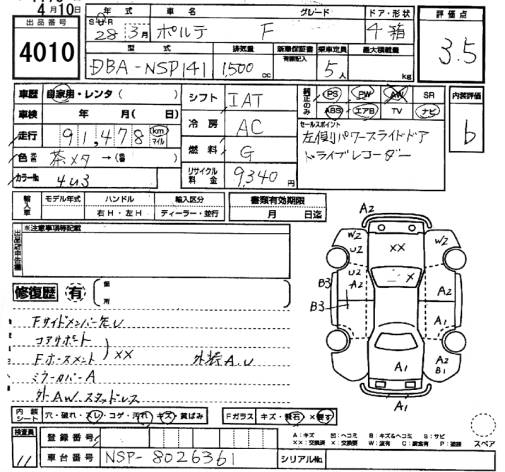 4月10日
出品番号
4010
年式
車名
グレード
ドア・形状
評価点
28年3月
ポルテ
F
4箱
3.5
型式
排気量
新車保証書
乗車定員
最大積載量
有無記入
DBA-NSP141
1,500cc
5人
kg
車歴 自家用・レンタ( )
シフト IAT
純正のみ
PS PW AW SR
ABS エアB TV ナビ
内装評価
b
車検 年 月( 日)
冷房 AC
セールスポイント
左側リパワースライドドア
ドライブレコーダー
走行 91,478 km マイル
燃料 G
色 茶メタ →( )
リサイクル料金 9,340円
カラーNo. 4U3
輸入車
モデル年式
ハンドル
輸入区分
書類有効期限
右H・左H
ディーラー・並行
月 日迄
※注意事項等記載
修復歴 有
箇所
Fサイドメンバー先U
コアサポート
Fホースメント
XX
外装A.U
ミラーカバーA
外AWスタッドレス
A2
W2
U2
XX
W2
U2
A2
X
B3
B3
A2
A2
A1
A1
A1
A2
B1
A1
内装シート 穴・破れ・スレ・コゲ・汚れ・キズ・黄ばみ
Fガラス キズ・飛石・X要す
検査員
11
登録番号
車台番号 NSP-8026361
シリアルNo.
A:キズ U:ヘコミ B:キズ&ヘコミ S:サビ
XX:交換済 X:交換要 W:波有 C:腐食有 P:塗装
スペア